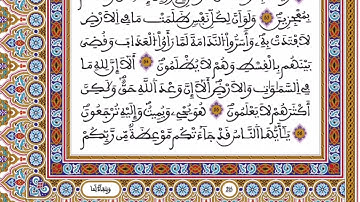 بِمُعْجِزِينَ ۝ وَلَوَ اَنَّ لِكُلِّ نَفْسٍ ظَلَمَتْ مَا فِي اِ۬لَارْضِ
لَافْتَدَتْ بِهِۦۖ وَأَسَرُّواْ اُ۬لنَّدَامَةَ لَمَّا رَأَوُاْ اُ۬لْعَذَابَۖ وَقُضِيَ
بَيْنَهُم بِالْقِسْطِ وَهُمْ لَا يُظْلَمُونَۖ ۝ أَلَآ إِنَّ لِلهِ مَا
فِي اِ۬لسَّمَٰوَٰتِ وَالَارْضِۖ أَلَآ إِنَّ وَعْدَ اَ۬للَّهِ حَقّٞ وَلَٰكِنَّ
أَكْثَرَهُمْ لَا يَعْلَمُونَۖ ۝ هُوَ يُحْيِۦ وَيُمِيتُ وَإِلَيْهِ تُرْجَعُونَۖ ۝
يَٰٓأَيُّهَا اَ۬لنَّاسُ قَدْ جَآءَتْكُم مَّوْعِظَةٞ مِّن رَّبِّكُمْ